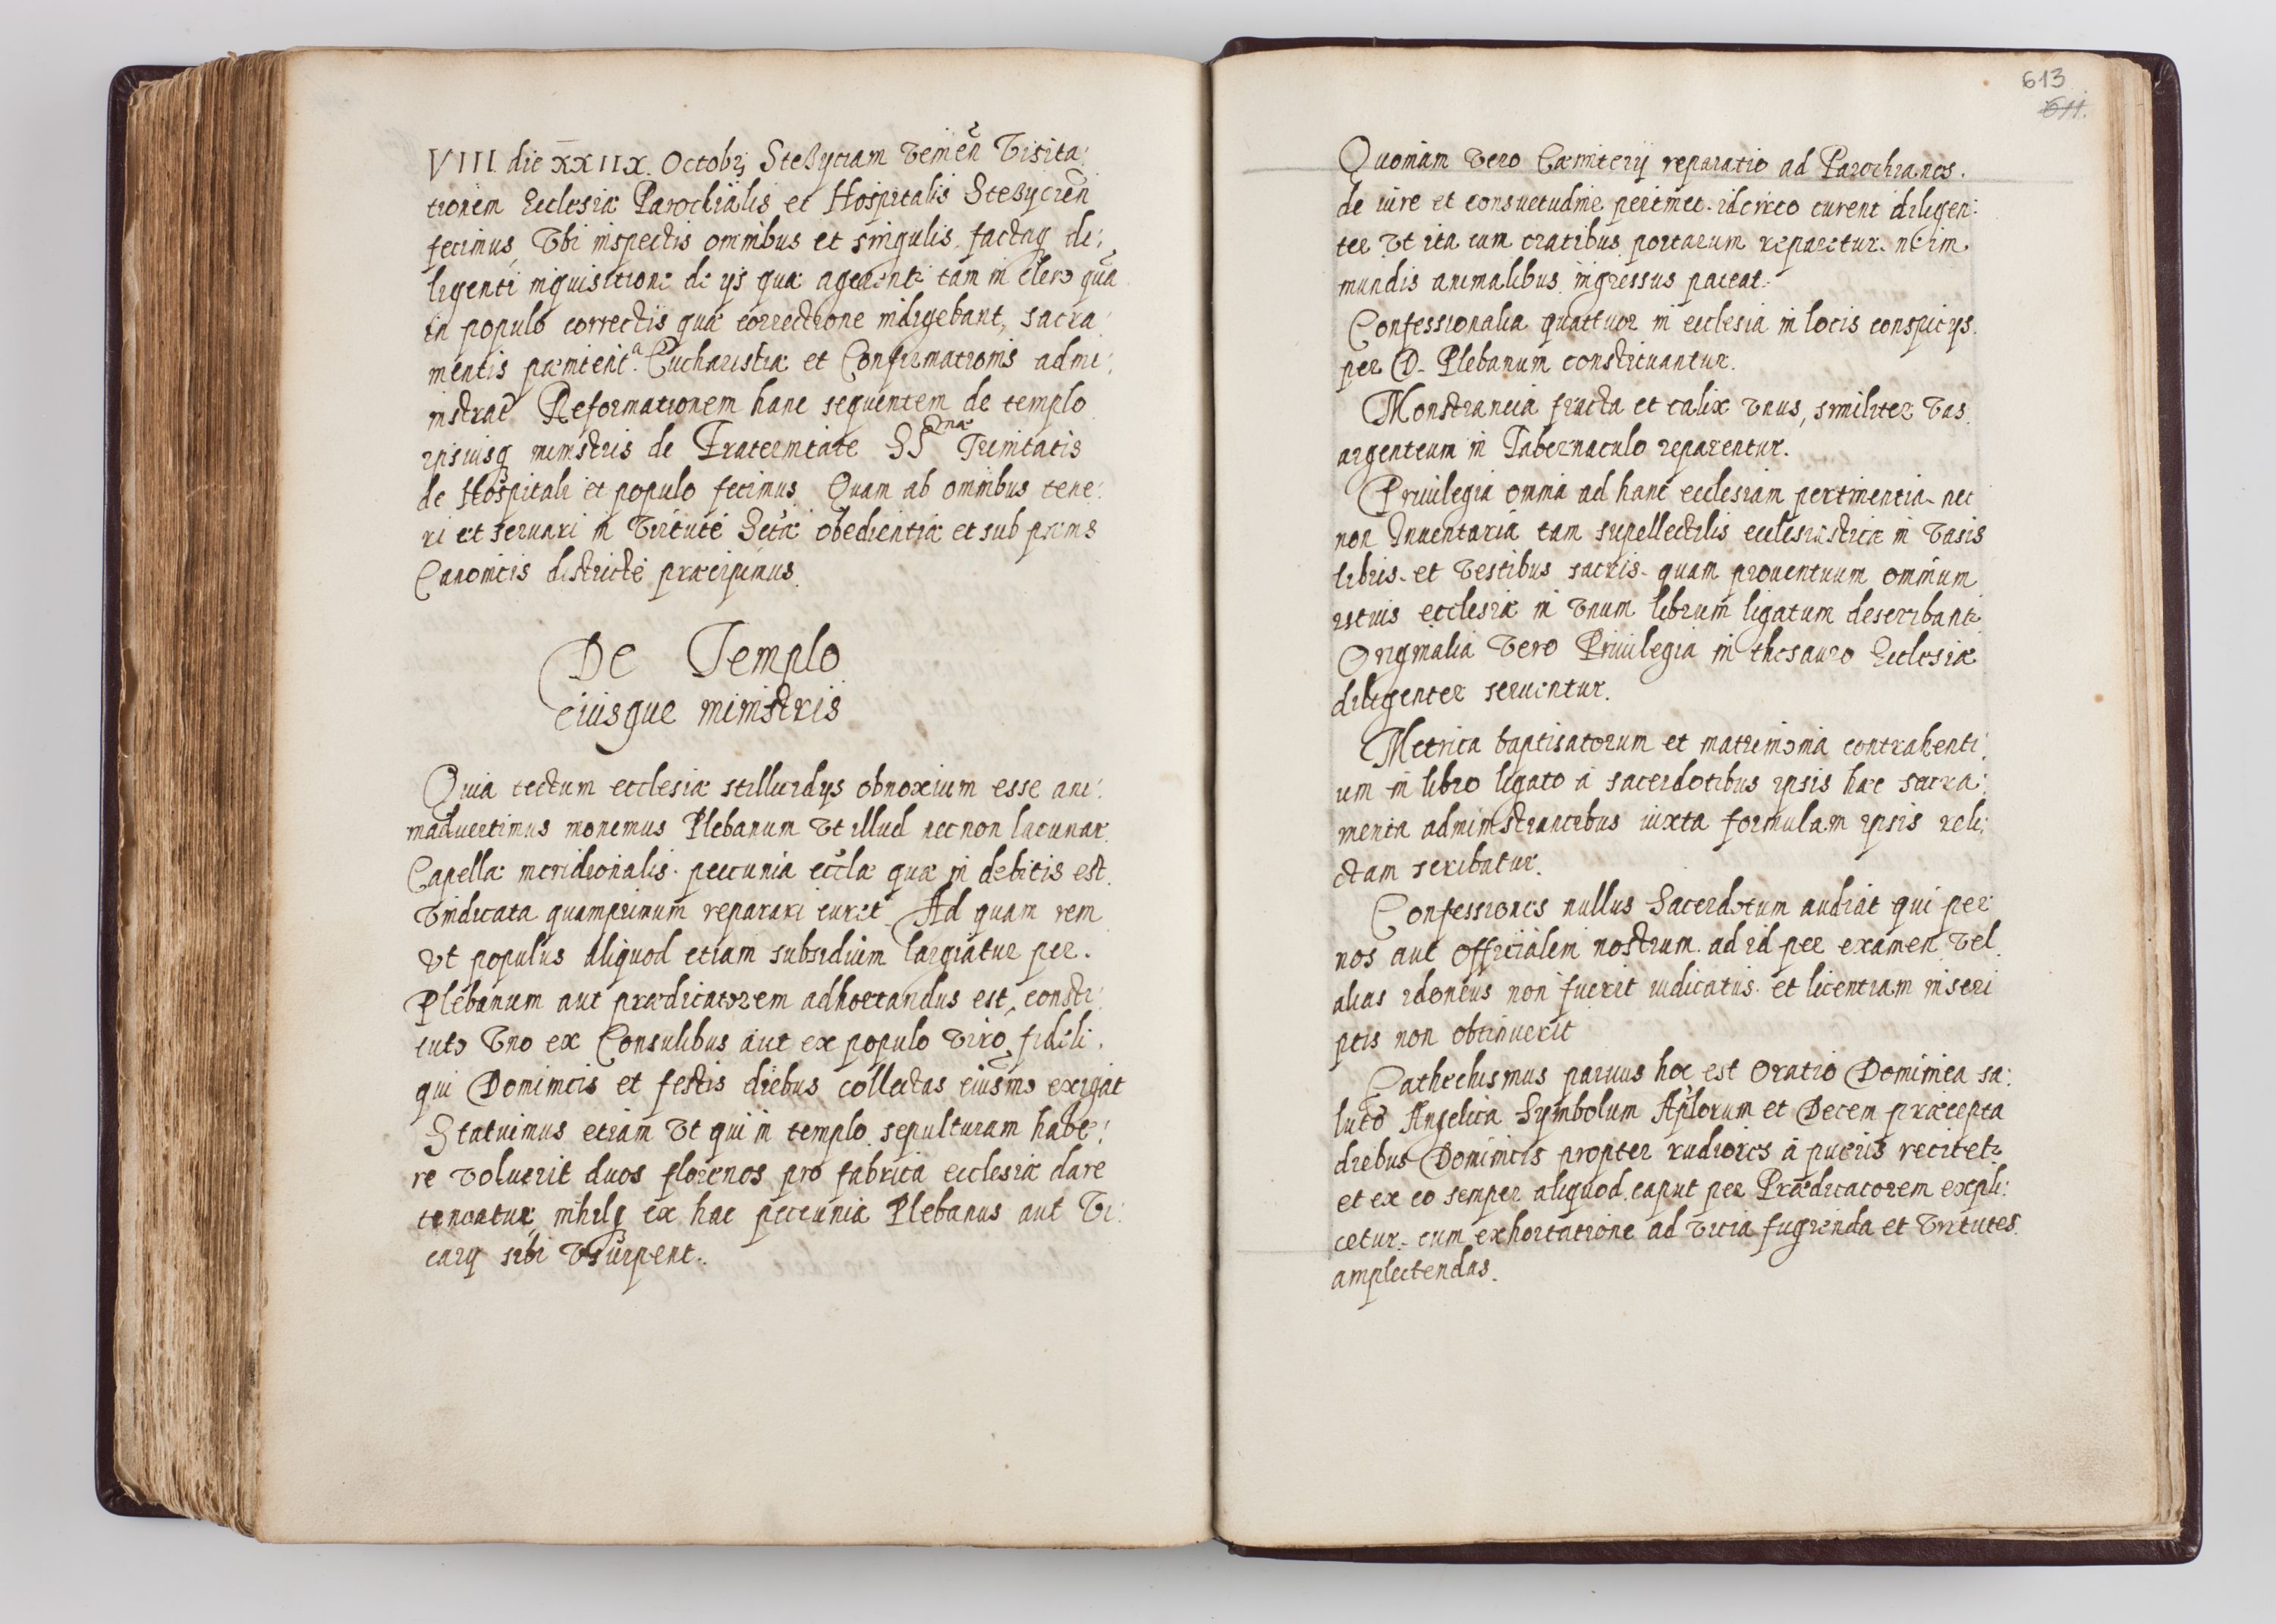 VIII. die XXIIX. Octobrꝫ Steßyciam vemeñ Visita:
tionem Ecclesiæ Parochialis et Hospitalis Steßycieñ
fecimus, Vbi inspectis omnibus et singulis, factaq; di:
ligenti inquisitione de ijs quæ agerent᷑ tam in clero quã
in populo correctis quæ correctione indigebant, sacra:
mentis pœnient.ᵃ Eucharistiæ et Confirmationis admi:
nistrat᷑ Reformationem hanc sequentem de templo
ipsiusq; ministris de Fraternitate SSᵐᵃᵉ Trinitatis
de Hospitali et populo fecimus. Quam ab omnibus tene:
ri et seruari in virtute Sctæ obedientiæ et sub pœnis
Canonicis districte præcipimus.
De Templo
eiusque ministris
Quia tectum ecclesiæ stillicidijs obnoxium esse ani:
maduertimus monemus Plebanum vt illud necnon lacunar
Capellæ meridionalis. pecunia eccłæ quæ in debitis est.
vindicata quamprimum reparari curet. Ad quam rem
vt populus aliquod etiam subsidium largiatur per.
Plebanum aut prædicatorem adhortandus est, consti:
tuto vno ex Consulibus aut ex populo viro fideli.
qui Dominicis et festis diebus collectas eiusmõ exigat
Statuimus etiam vt qui in templo sepulturam habe:
re voluerit duos florenos pro fabrica ecclesiæ dare
teneatur, nihilq; ex hac pecunia Plebanus aut Vi:
carij sibi vsurpent.
613
611.
Quoniam vero Cæmiterij reparatio ad Parochianos.
de iure et consuetudine pertinet. idcirco curent diligen:
ter vt ita cum cratibus portarum reparetur. ne im
mundis animalibus ingressus pateat.
Confessionalia quattuor in ecclesia in locis conspicijs.
per D. Plebanum constituantur.
Monstrancia fracta et calix vnus, similiter vas
argenteum in Tabernaculo reparentur.
Priuilegia omnia ad hanc ecclesiam pertinentia nec
non Inuentaria tam supellectilis ecclesiasticæ in vasis
libris. et vestibus sacris. quam prouentuum omnium
istius ecclesiæ in vnum librum ligatum describant᷑.
Originalia vero Priuilegia in thesauro Ecclesiæ
diligenter seruentur.
Metrica baptisatorum et matrimonia contrahenti:
um in libro ligato à sacerdotibus ipsis hæc sacra:
menta administrantibus iuxta formulam ipsis reli:
ctam scribatur.
Confessiones nullus Sacerdotum audiat qui per
nos aut Officialem nostrum ad id per examen vel
alias idoneus non fuerit iudicatus. et licentiam inscri
ptis non obtinuerit
Cathechismus paruus hoc est Oratio Dominica sa:
lutõ Angelica Symbolum Ap̃lorum et Decem præcepta
diebus Dominicis propter rudiores à pueris recitet᷑
et ex eo semper aliquod caput per Prædicatorem expli:
cetur. cum exhortatione ad vicia fugienda et virtutes
amplectendas.